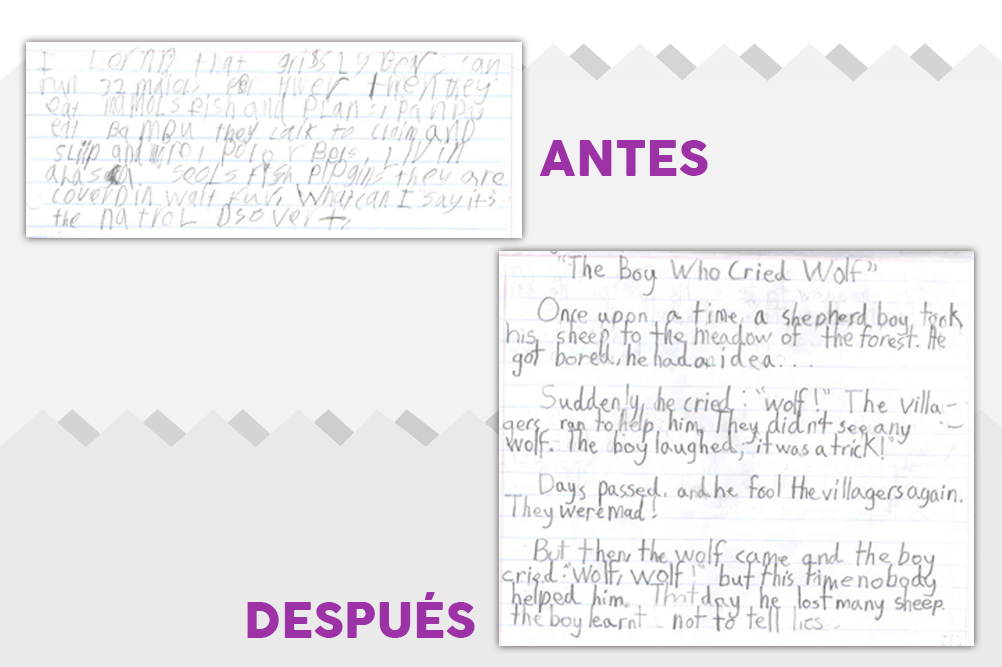 I Lornd that grissly Bears can
run 32 mials per hwer then they
eat mamols fish and Plans, Panpu
eat BamBu they laik to claim and
sliip and Polor Bers, Liv in
alas seols Fish they are
coverD in wait fur, What can I say it's
the natrol Dsovert,
ANTES
"The Boy Who Cried Wolf"
Once upon a time, a shepherd boy took
his sheep to the meadow of the forest. He
got bored, he had an idea...
Suddenly, he cried: "wolf!" The villa-
gers ran to help him, They didn't see any
wolf. The boy laughed, "it was a trick!"
Days passed, and he fool the villagers again.
They were mad!
But then, the wolf came and the boy
cried: "Wolf, wolf!" but this time nobody
helped him. That day he lost many sheep.
the boy learnt not to tell lies.
DESPUÉS